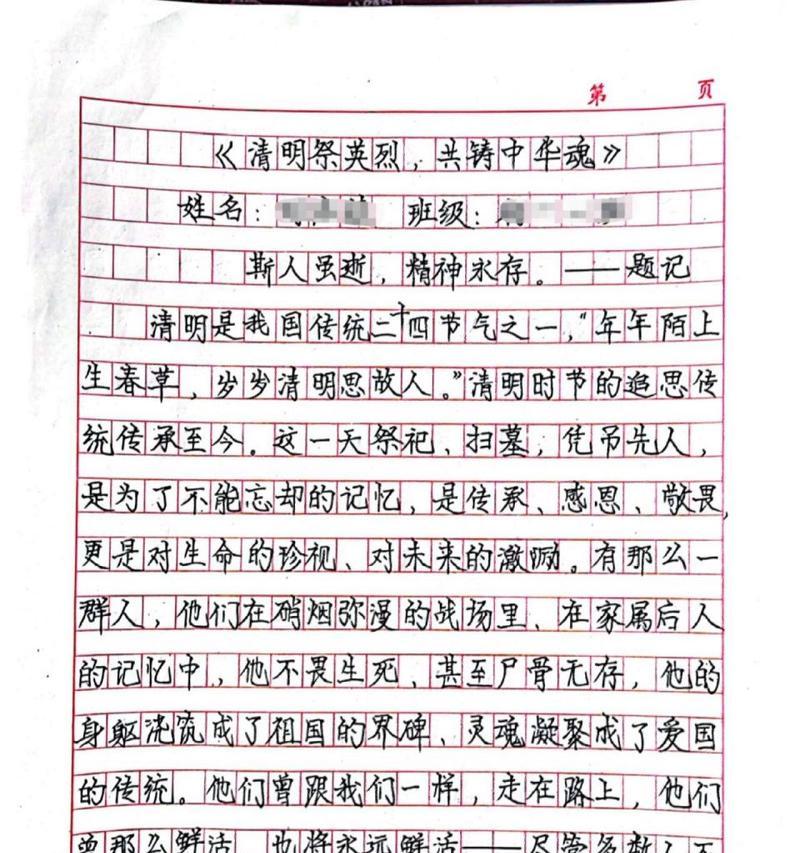 第 页
《清明祭英烈，共铸中华魂》
姓名： 班级：
斯人虽逝，精神永存。——题记
清明是我国传统二十四节气之一，“年年陌上
生春草，岁岁清明思故人。”清明时节的追思传
统传承至今。这一天祭祀、扫墓，凭吊先人，
是为了不能忘却的记忆，是传承、感恩、敬畏，
更是对生命的珍视、对未来的激励。有那么一
群人，他们在硝烟弥漫的战场里、在家属后人
的记忆中，他不畏生死、甚至尸骨无存，他的
身躯浇筑成了祖国的界碑、灵魂凝聚成了爱国
的传统。他们曾跟我们一样，走在路上，他们
曾那么鲜活，也将永远鲜活——尽管多数人不